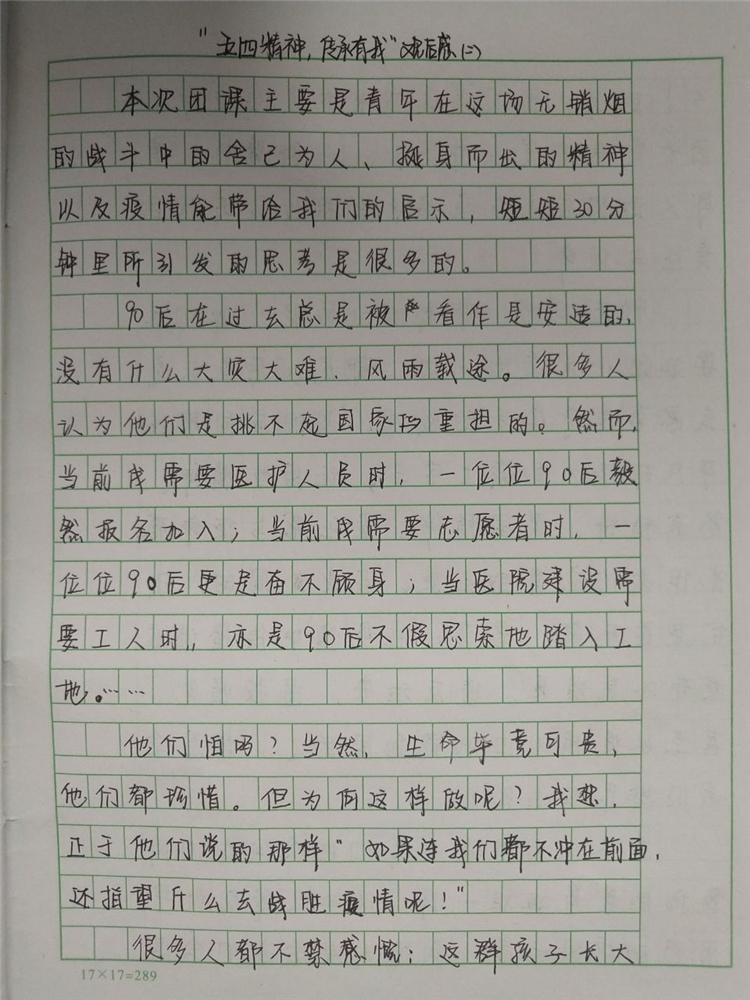 “五四精神，传承有我”观后感(二)
本次团课主要是青年在这场无销烟
的战斗中的舍己为人、挺身而出的精神
以及疫情能带给我们的启示，短短30分
钟里所引发的思考是很多的。
90后在过去总是被看作是安逸的，
没有什么大灾大难、风雨载途。很多人
认为他们是挑不起国家的重担的。然而，
当前线需要医护人员时，一位位90后毅
然报名加入；当前线需要志愿者时，一
位位90后更是奋不顾身；当医院建设需
要工人时，亦是90后不假思索地踏入工
地。……
他们怕吗？当然，生命毕竟可贵，
他们都珍惜。但为何这样做呢？我想，
正于他们说的那样“如果连我们都不冲在前面，
还指望什么去战胜疫情呢！”
很多人都不禁感慨：这群孩子长大
17×17=289